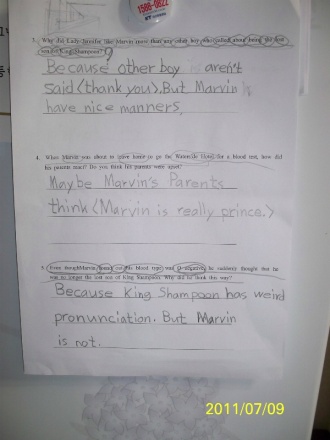 1588-0822
3. Why did Lady Jennifer like Marvin more than any other boy who
King Shampoon?
Because other boy is aren't
said <thank you>. But Marvin is
have nice manners.
4. When Marvin was about to leave home to go the Watercide Hotel for a blood test, how did
his parents react? Do you think his parents were upset?
Maybe Marvin's Parents
think <Marvin is really prince.>
5. Even though Marvin found out his blood type was O negative, he suddenly thought that he
was no longer the lost son of King Shampoon. Why did he think this way?
Because King Shampoon has weird
pronunciation. But Marvin
is not.
2011/07/09